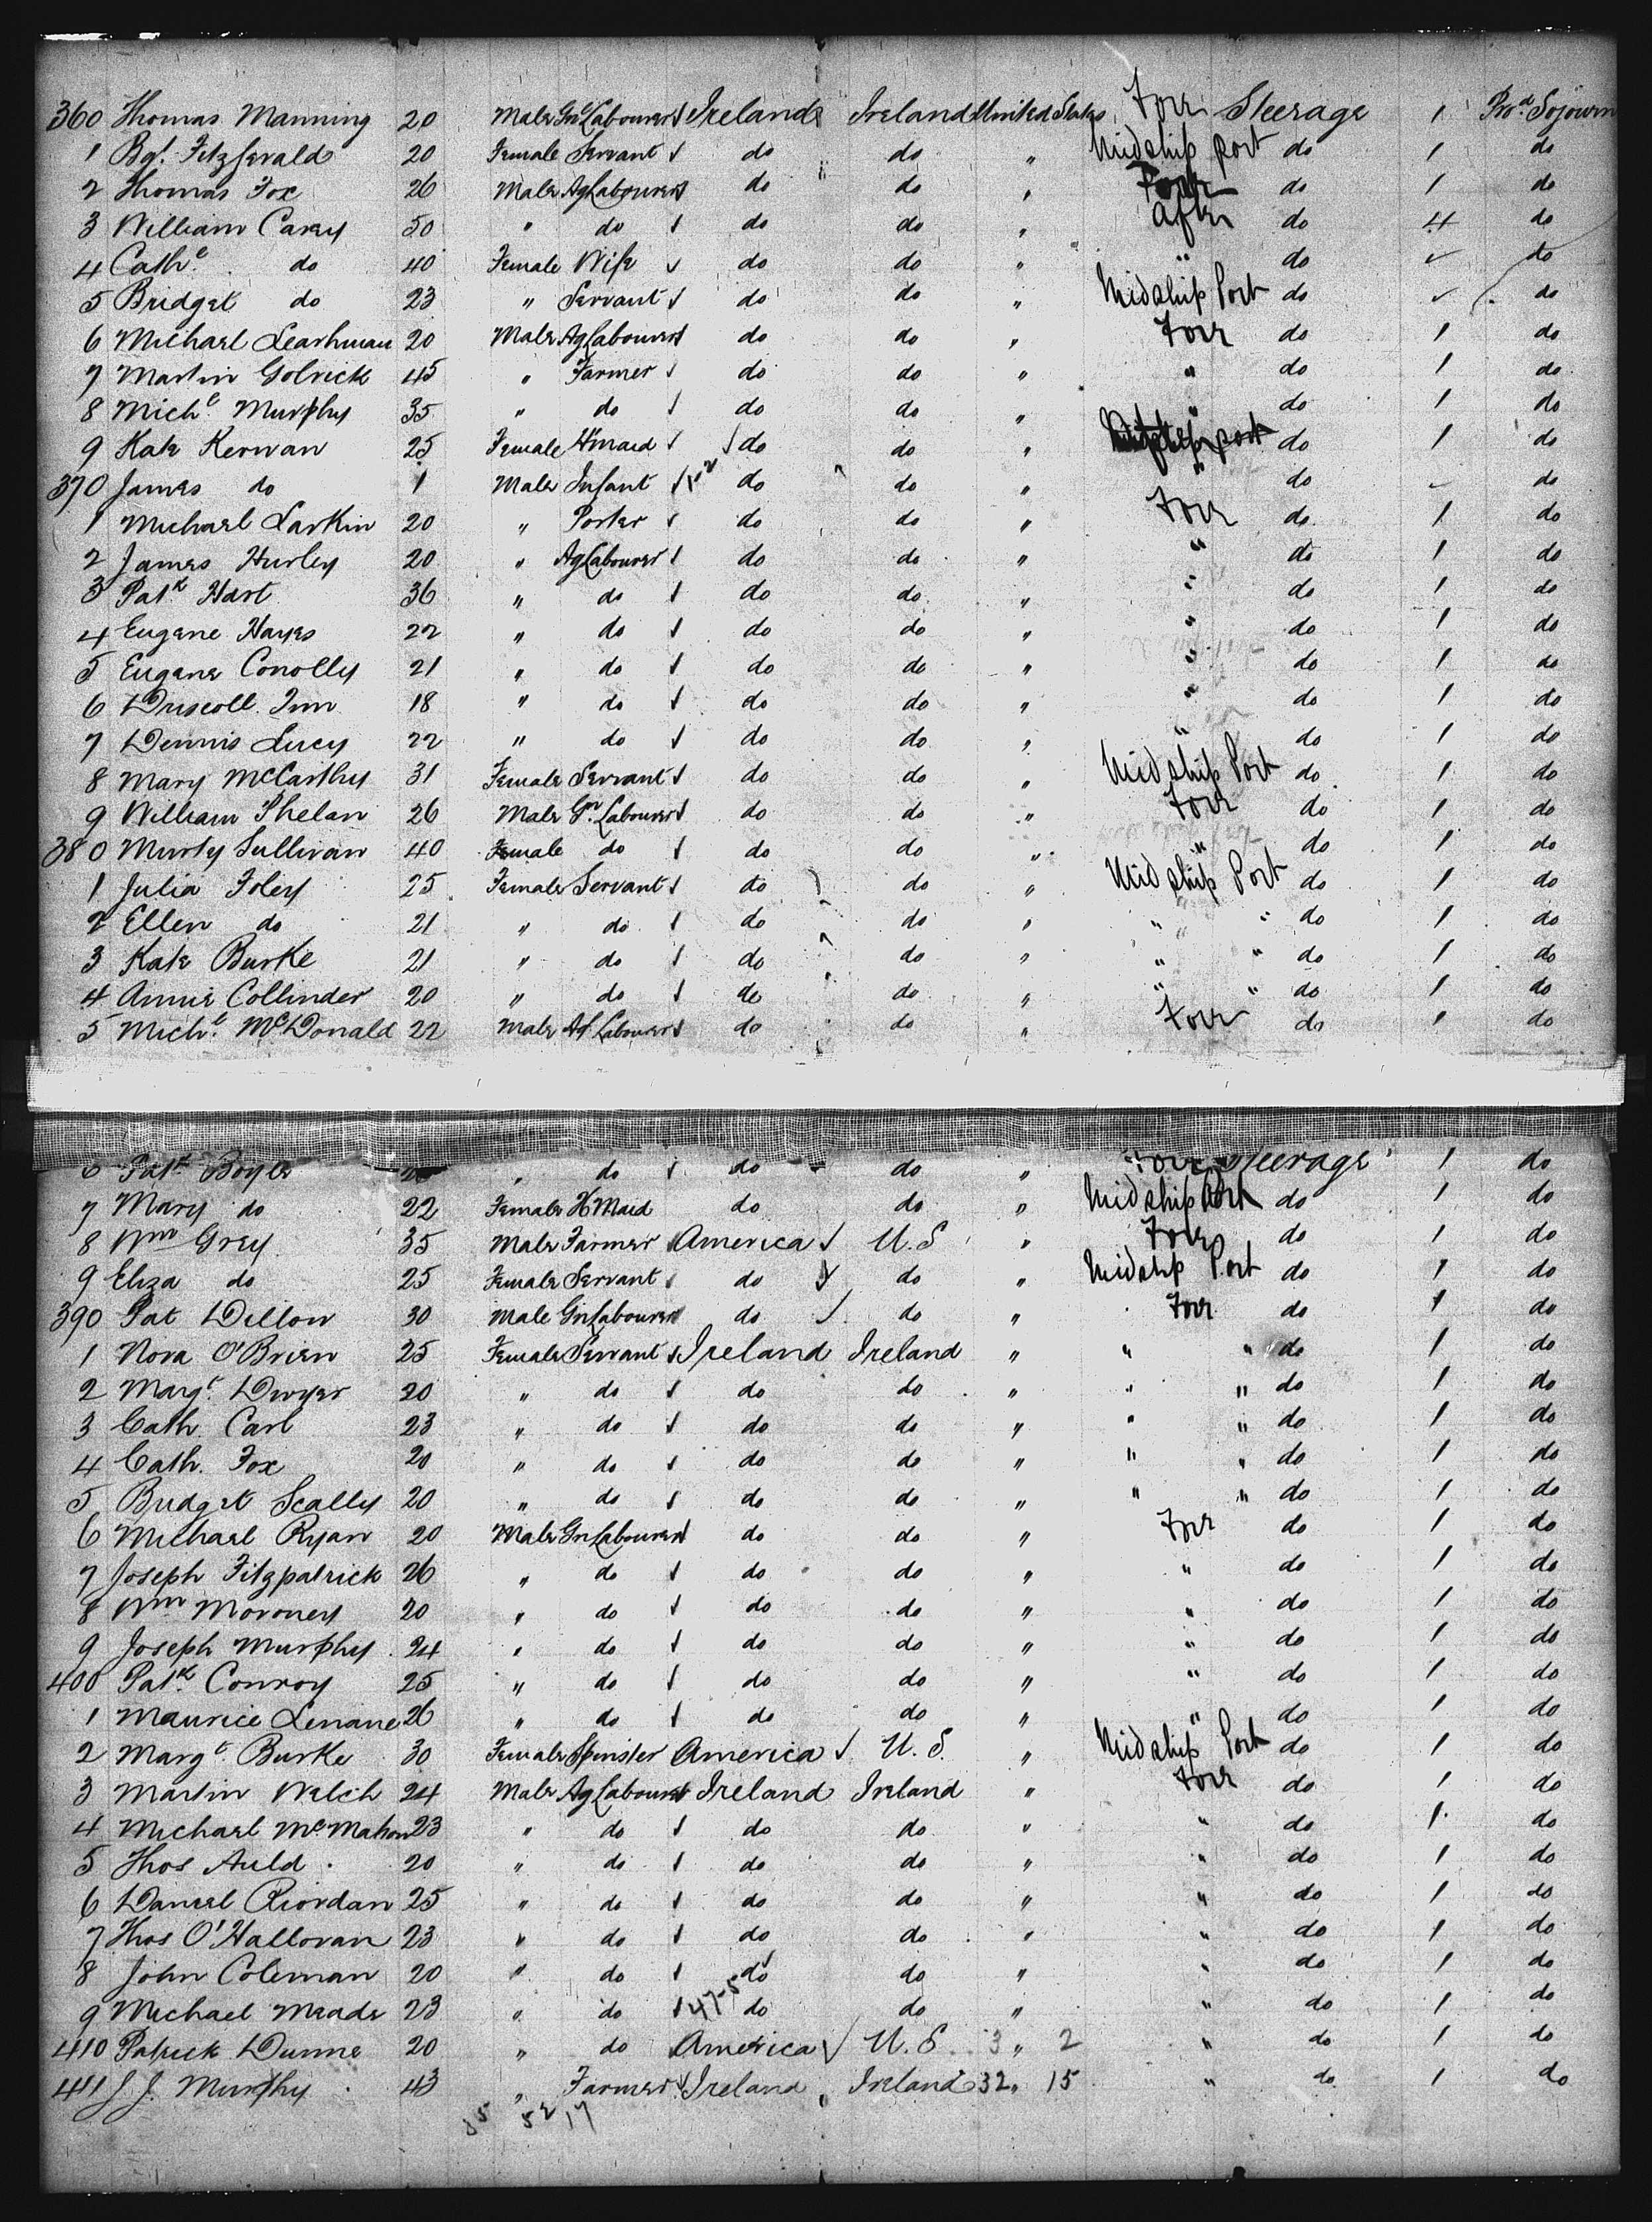 360 Thomas Manning 20 Male Gnl Labourer Ireland Ireland United States Fore Steerage 1 Pro.d Sojourn
1 Bgt. Fitzgerald 20 Female Servant do do " Midship port do 1 do
2 Thomas Fox 26 Male Ag Labourer do do " Fore do 1 do
3 William Carey 50 " do do do " After do 4 do
4 Cath.e do 40 Female Wife do do " " do ✓ do
5 Bridget do 23 " Servant do do " Midship Port do ✓ do
6 Michael Leashman 20 Male Ag Labourer do do " Fore do 1 do
7 Martin Golrick 45 " Farmer do do " " do 1 do
8 Mich.l Murphy 35 " do do do " " do 1 do
9 Kate Kerwan 25 Female H maid do do " Midship port do 1 do
370 James do 1 Male Infant do do " " do ✓ do
1 Michael Larkin 20 " Porter do do " Fore do 1 do
2 James Hurley 20 " Ag Labourer do do " " do 1 do
3 Patk Hart 36 " do do do " " do 1 do
4 Eugene Hayes 22 " do do do " " do 1 do
5 Eugene Conolly 21 " do do do " " do 1 do
6 Driscoll Tim 18 " do do do " " do 1 do
7 Dennis Lucy 22 " do do do " " do 1 do
8 Mary McCarthy 31 Female Servant do do " Midship Port do 1 do
9 William Phelan 26 Male Gn. Labourer do do " Fore do 1 do
380 Murty Sullivan 40 Female do do do " " do 1 do
1 Julia Foley 25 Female Servant do do " Midship Port do 1 do
2 Ellen do 21 " do do do " " " do 1 do
3 Kate Burke 21 " do do do " " " do 1 do
4 Annie Collinder 20 " do do do " " " do 1 do
5 Mich.l McDonald 22 Male Ag Labourer do do " Fore do 1 do
6 Patk Boyle " do do do " Fore Steerage 1 do
7 Mary do 22 Female H Maid do do " Midship Port do 1 do
8 Wm Grey 35 Male Farmer America U.S " Fore do 1 do
9 Eliza do 25 Female Servant do do " Midship Port do 1 do
390 Pat Dillon 30 Male Gn Labourer do do " Fore do 1 do
1 Nora O'Brien 25 Female Servant Ireland Ireland " " " do 1 do
2 Margt. Dwyer 20 " do do do " " " do 1 do
3 Cath. Carl 23 " do do do " " " do 1 do
4 Cath. Fox 20 " do do do " " " do 1 do
5 Bridget Scally 20 " do do do " " " do 1 do
6 Michael Ryan 20 Male Gn Labourer do do " Fore do 1 do
7 Joseph Fitzpatrick 26 " do do do " " do 1 do
8 Wm Moroney 20 " do do do " " do 1 do
9 Joseph Murphy 24 " do do do " " do 1 do
400 Patk Conroy 25 " do do do " " do 1 do
1 Maurice Lenane 26 " do do do " " do 1 do
2 Margt. Burke 30 Female Spinster America U.S. " Midship Port do 1 do
3 Martin Welch 24 Male Ag Labourer Ireland Ireland " Fore do 1 do
4 Michael McMahon 23 " do do do " " do 1 do
5 Thos Auld 20 " do do do " " do 1 do
6 Daniel Riordan 25 " do do do " " do 1 do
7 Thos O'Halloran 23 " do do do " " do 1 do
8 John Coleman 20 " do do do " " do 1 do
9 Michael Meade 23 " do 47-5 do do " " do 1 do
410 Patrick Dunne 20 " do America U.S. 3 " 2 " do 1 do
411 J. J. Murphy 43 " Farmer Ireland Ireland 32 " 15 " do 1 do
17